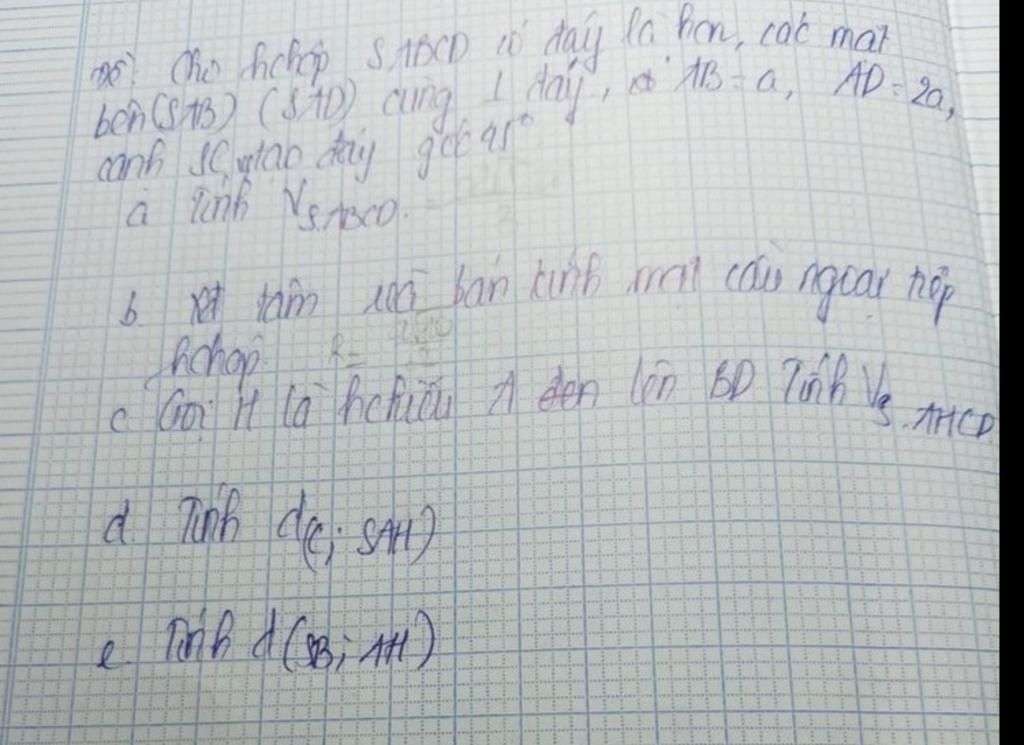 Cho hchóp SABCD có đáy là hcn, các mặt
bên (SAB) (SAD) cùng ⊥ đáy, AB = a, AD = 2a,
cạnh SC tạo đáy góc 45°
a Tính V S.ABCD.
b. tâm và bán kính mặt cầu ngoại tiếp
hchóp R =
c Gọi H là hchiếu A lên BD Tính V S.AHCD
d. Tính d(C; SAH)
e. Tính d(SB; AH)